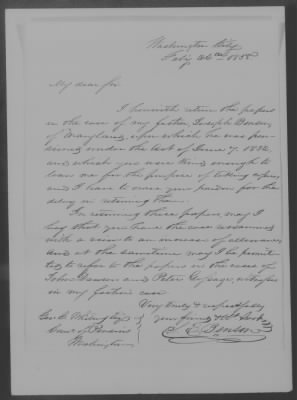 Washington City
Feby 22nd 1855
My dear Sir
I herewith return the papers
in the case of my father, Joseph Benson
of Maryland, upon which he was pen-
sioned under the act of June 7. 1832,
and which you were kind enough to
loan me for the purpose of taking copies
and I have to crave your pardon for the
delay in returning them.
In returning these papers, may I
beg that you have the case reexamined
with a view to an increase of allowance
and at the same time may I be permit-
ted to refer to the papers in the case of
John Dawson and Peter witnesses
in my father's case
Very truly & respectfully
your friend & Obt Servt
Benson
Geo. C. Whiting Esq
Comr. of Pensions
Washington